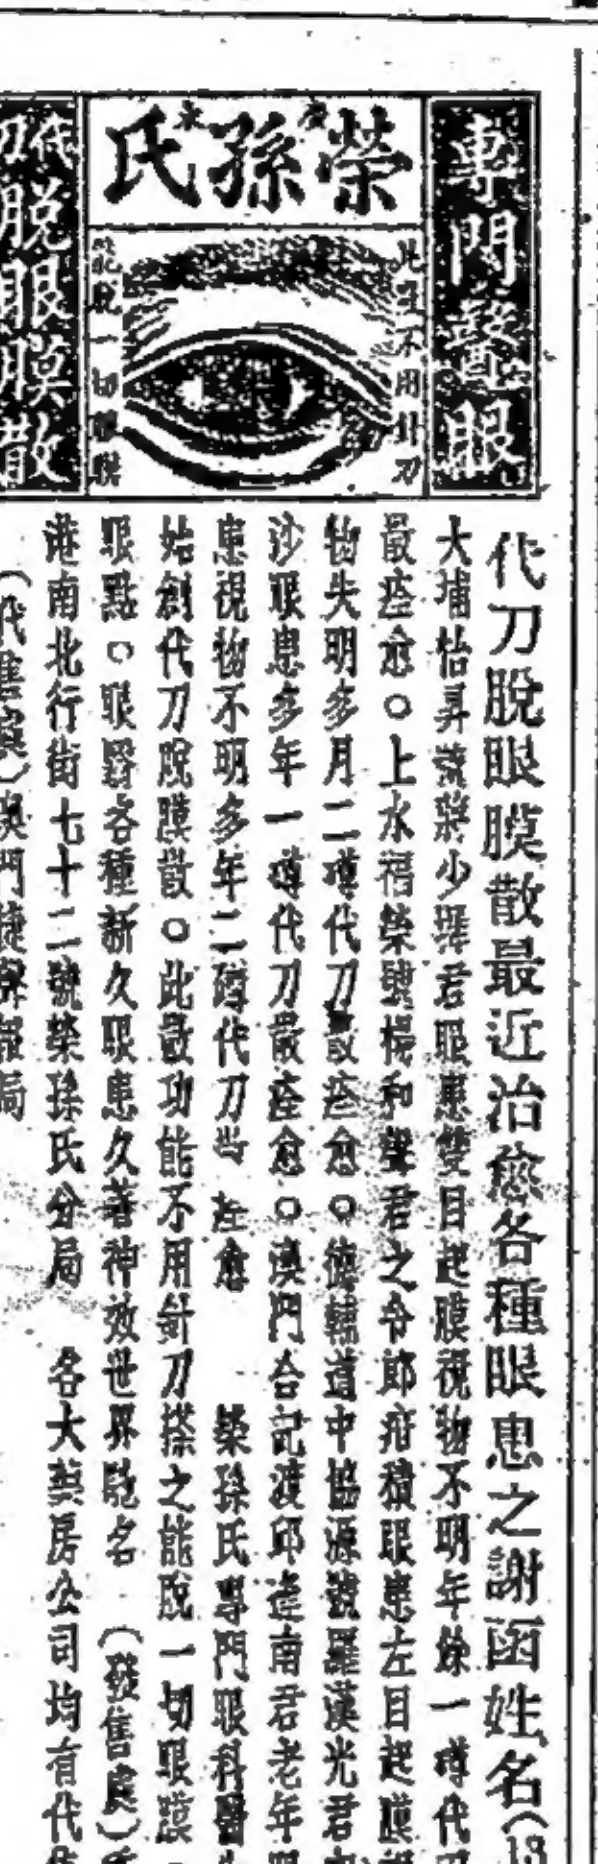 專門醫眼
榮孫氏
此藥不用針刀
能脫一切眼膜
代刀脫眼膜散
代刀脫眼膜散最近治愈各種眼患之謝函姓名
大埔怡昇號 少 君眼患雙目起膜視物不明年餘一樽代刀
散痊愈○上水福榮號楊和聲君之令郎疳積眼患左目起膜視
物失明多月二樽代刀散痊愈○德輔道中協源號羅漢光君
沙眼患多年一樽代刀散痊愈○澳門合記渡邱達南君老年眼
患視物不明多年二樽代刀 痊愈 榮孫氏專門眼科醫
始創代刀脫膜散○此散功能不用針刀搽之能脫一切眼膜
眼點○眼翳各種新久眼患久著神效世界馳名 (發售處)
港南北行街七十二號榮孫氏分局 各大藥房公司均有代售
(代售處)澳門捷 報局